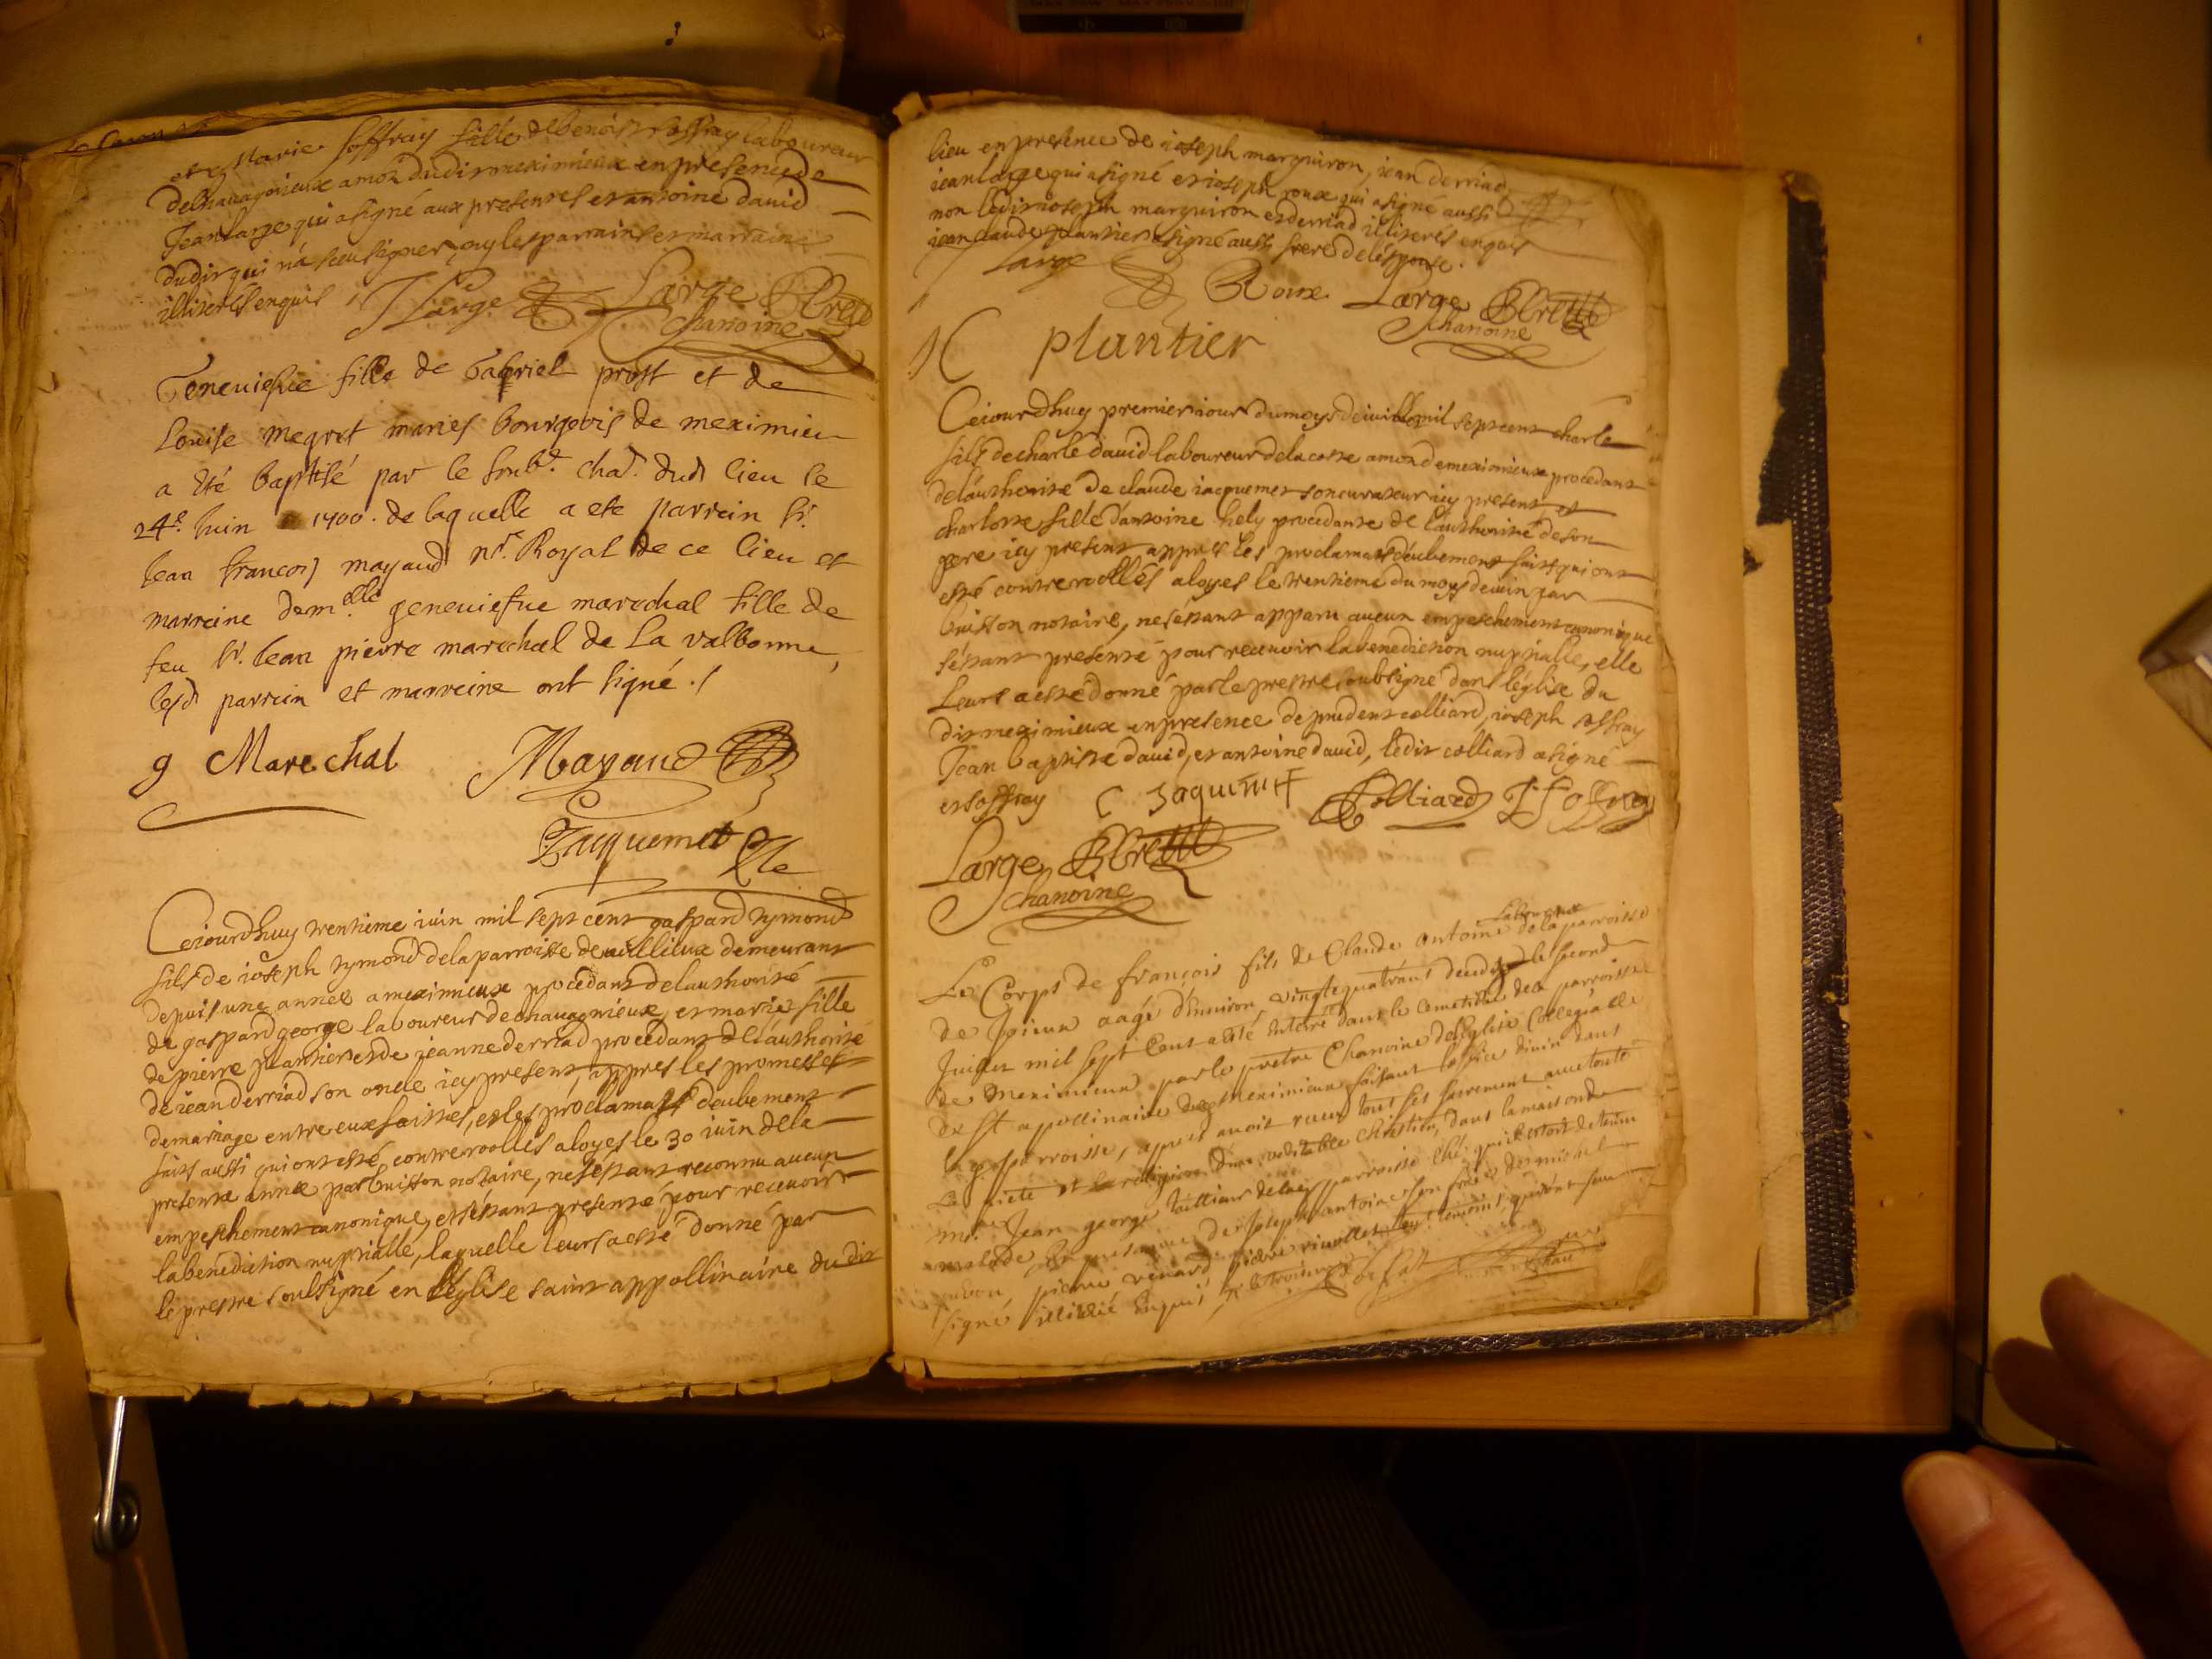 et marie soffray fille de benoist soffray laboureur
de chavagnieux amon dudit meximieux en presence de
Jean large qui a signé aux presentes et antoine david
dudit qui n'a sceu signer ny les parrains et marraine
illiterés enquis J Large Large Pretre
Chanoine
Geneviefve fille de Gabriel prost et de
Louise megret mariés bourgeois de meximieu
a été baptisé par le soubt. cha. dud lieu le
24e. Juin 1700. de laquelle a ete parrein sr.
Jean francois mayaud nre. Royal de ce lieu et
marreine demelle geneviefve marechal fille de
feu sr. Jean pierre marechal de La valbonne,
lesd parrein et marreine ont signé ./
g Marechal Mayaud
Jacquemet
Cejourdhuy trentieme iuin mil sept cent gaspard rymond
fils de ioseph rymond de la parroisse de demeurant
depuis une année a meximieux procedant de lauthorité
de gaspard george laboureur de chavagnieux, et marie fille
de pierre plantier et de jeanne derriad procedant de l'authorité
de iean derriad son oncle icy present, appres les promesses
de mariage entre eux faittes, et les proclamats deubement
faits aussi qui ont esté contreroollés a loyes le 30 iuin de la
presente année par buisson notaire, ne s'estant reconnu aucun
empeschement canonique, et s'estant presenté pour recevoir
la benediction nuptialle, laquelle leurs a esté donné par
le prestre soubsigné en l'église saint appollinaire du dit
lieu en presence de ioseph marguiron, iean derriad
iean large qui a signé et ioseph roux qui a signé aussi
non ledit ioseph marguiron et derriad illiterés enquis
jean claude plantier a signé aussi frere de lespouse.
Large Roux Large Pretre
Chanoine
plantier
Cejourdhuy premier iour du moys de iuillet mil sept cent charle
fils de charle david laboureur de la coste amon de meximieux procedant
de l'authorité de claude iacquemet son curateur icy present, et
charlotte fille d'antoine hely procedante de l'authorité de son
pere icy present appres les proclamats deubement faits qui ont
esté contreroollés a loyes le trentieme du moys de iuin par
buisson notaire, ne s'estant apparu aucun empeschement canonique
s'estant presenté pour recevoir la benediction nuptialle, elle
leurs a esté donné par le prestre soubsigné dans l'église du
dit meximieux en presence de prudent colliard, ioseph soffray
Jean baptiste david, et antoine david, ledit colliard a signé
et soffray C Jaquemet Colliard J Soffray
Large Pretre
Chanoine
laboureur
Le Corps de françois fils de Claude antoine de la parroisse
de Joieux aagé d'environ vingt quatre ans decedé le second
Juillet mil sept Cent a été Enterré dans le cemetiere de la parroisse
de Meximieux par le pretre Chanoine de l'Eglise Collegialle
de St apollinaire de Meximieux faisant l'office divin dans
lad parroisse, apres avoir receu tous ses sacrement avec toute
la piété et la religion d'un veritable Chrestien, dans la maison de
mr. Jean george tallieur de lad parroisse chez qui il estoit detenu
malade, En presence de Joseph antoine son frere de michel
pierre renard pierre temoins qui n'ont sceu
signé illitéré Enquis